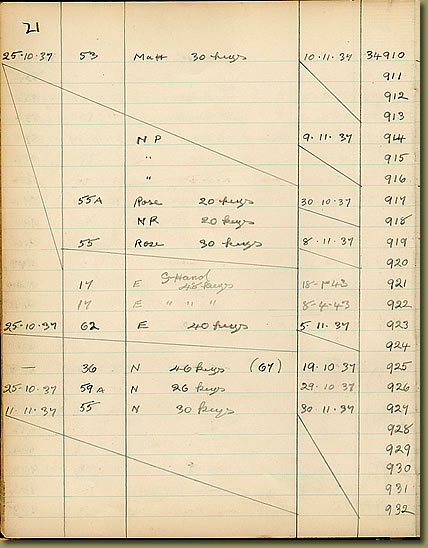 21
25·10·37 53 Matt 30 keys 10·11·37 34910
911
912
913
NP 9·11·37 914
" 915
" 916
55A Rose 20 keys 30 10·37 917
NR 20 keys 918
55 Rose 30 keys 8·11·37 919
920
S Hand
17 E 48 keys 18-1-43 921
17 E " " " 8-4-43 922
25·10·37 62 E 40 keys 5 11·37 923
924
— 36 N 46 keys (67) 19·10·37 925
25·10·37 59A N 26 keys 29·10·37 926
11·11·37 55 N 30 keys 30 11·37 927
928
929
930
931
932